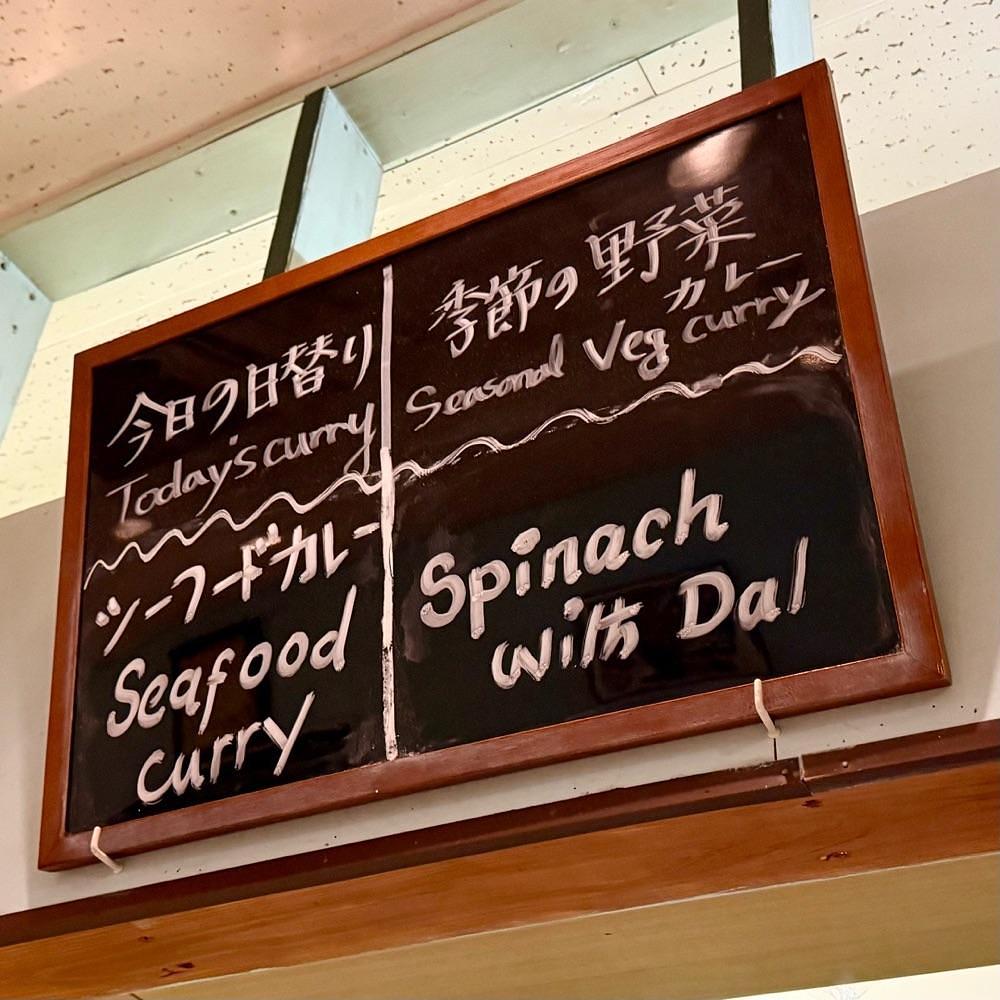 今日の日替り
Today's curry
シーフードカレー
Seafood
curry
季節の野菜
カレー
Seasonal Veg curry
Spinach
with Dal